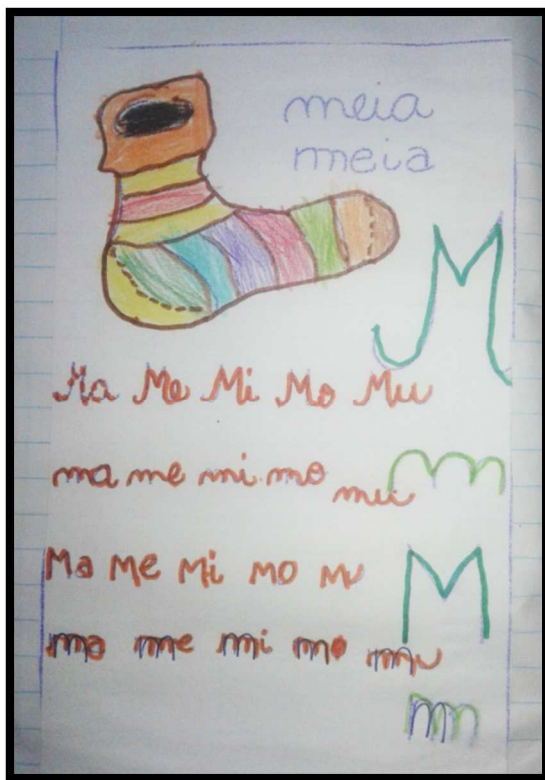 meia
meia
M
Ma Me Mi Mo Mu
ma me mi mo mu
m
Ma Me Mi Mo Mu
M
ma me mi mo mu
m